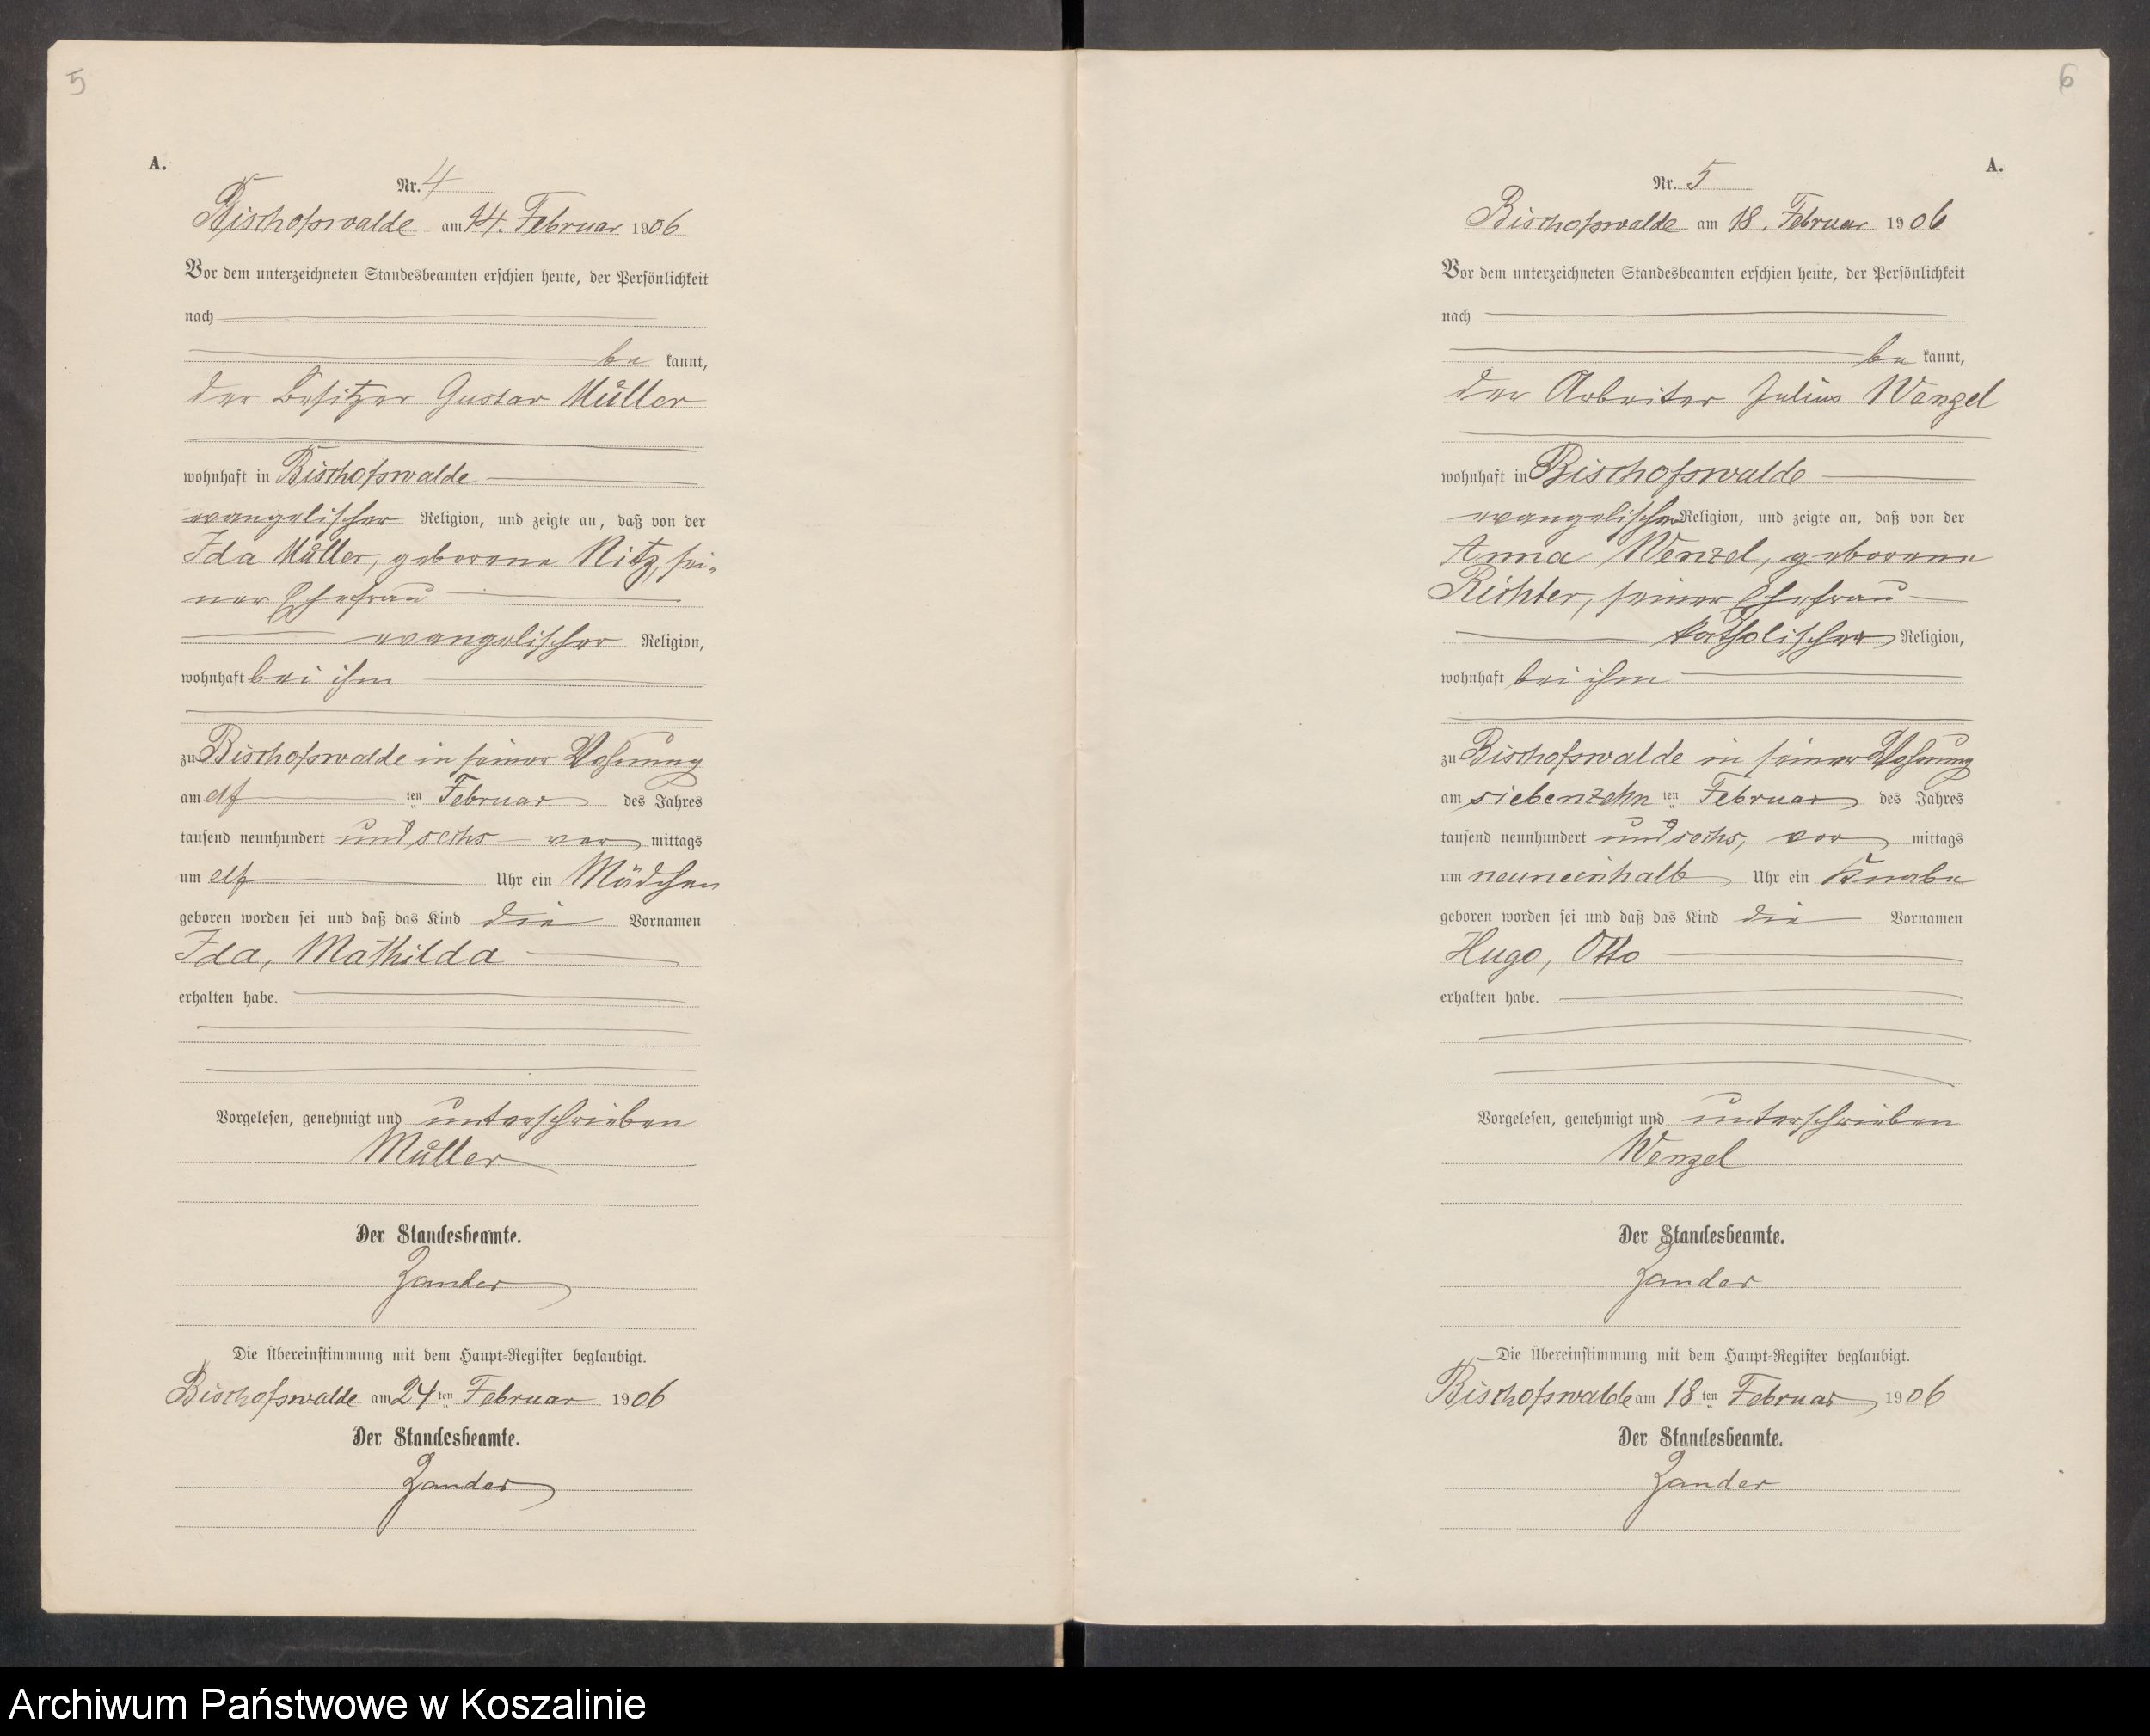 5
A.
Nr. 4
Bischofswalde am 14. Februar 1906
Vor dem unterzeichneten Standesbeamten erschien heute, der Persönlichkeit
nach
be kannt,
der Besitzer Gustav Müller
wohnhaft in Bischofswalde
evangelischer Religion, und zeigte an, daß von der
Ida Müller, geborene Nitz, sei-
ner Ehefrau
evangelischer Religion,
wohnhaft bei ihm
zu Bischofswalde in seiner Wohnung
am elf ten Februar des Jahres
tausend neunhundert und sechs vor mittags
um elf Uhr ein Mädchen
geboren worden sei und daß das Kind die Vornamen
Ida, Mathilda
erhalten habe.
Vorgelesen, genehmigt und unterschrieben
Müller
Der Standesbeamte.
Zander
Die Übereinstimmung mit dem Haupt-Register beglaubigt.
Bischofswalde am 24 ten Februar 1906
Der Standesbeamte.
Zander
6
A.
Nr. 5
Bischofswalde am 18. Februar 1906
Vor dem unterzeichneten Standesbeamten erschien heute, der Persönlichkeit
nach
be kannt,
der Arbeiter Julius Wenzel
wohnhaft in Bischofswalde
evangelischer Religion, und zeigte an, daß von der
Anna Wenzel, geborene
Richter, seiner Ehefrau
katholischer Religion,
wohnhaft bei ihm
zu Bischofswalde in seiner Wohnung
am siebenzehn ten Februar des Jahres
tausend neunhundert und sechs, vor mittags
um neuneinhalb Uhr ein Knabe
geboren worden sei und daß das Kind die Vornamen
Hugo, Otto
erhalten habe.
Vorgelesen, genehmigt und unterschrieben
Wenzel
Der Standesbeamte.
Zander
Die Übereinstimmung mit dem Haupt-Register beglaubigt.
Bischofswalde am 18 ten Februar 1906
Der Standesbeamte.
Zander
Archiwum Państwowe w Koszalinie